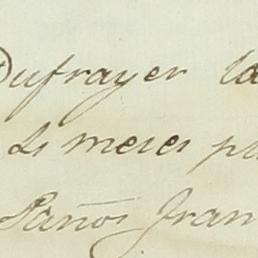 Dufrayer la
Ls meses pa
Paños fran